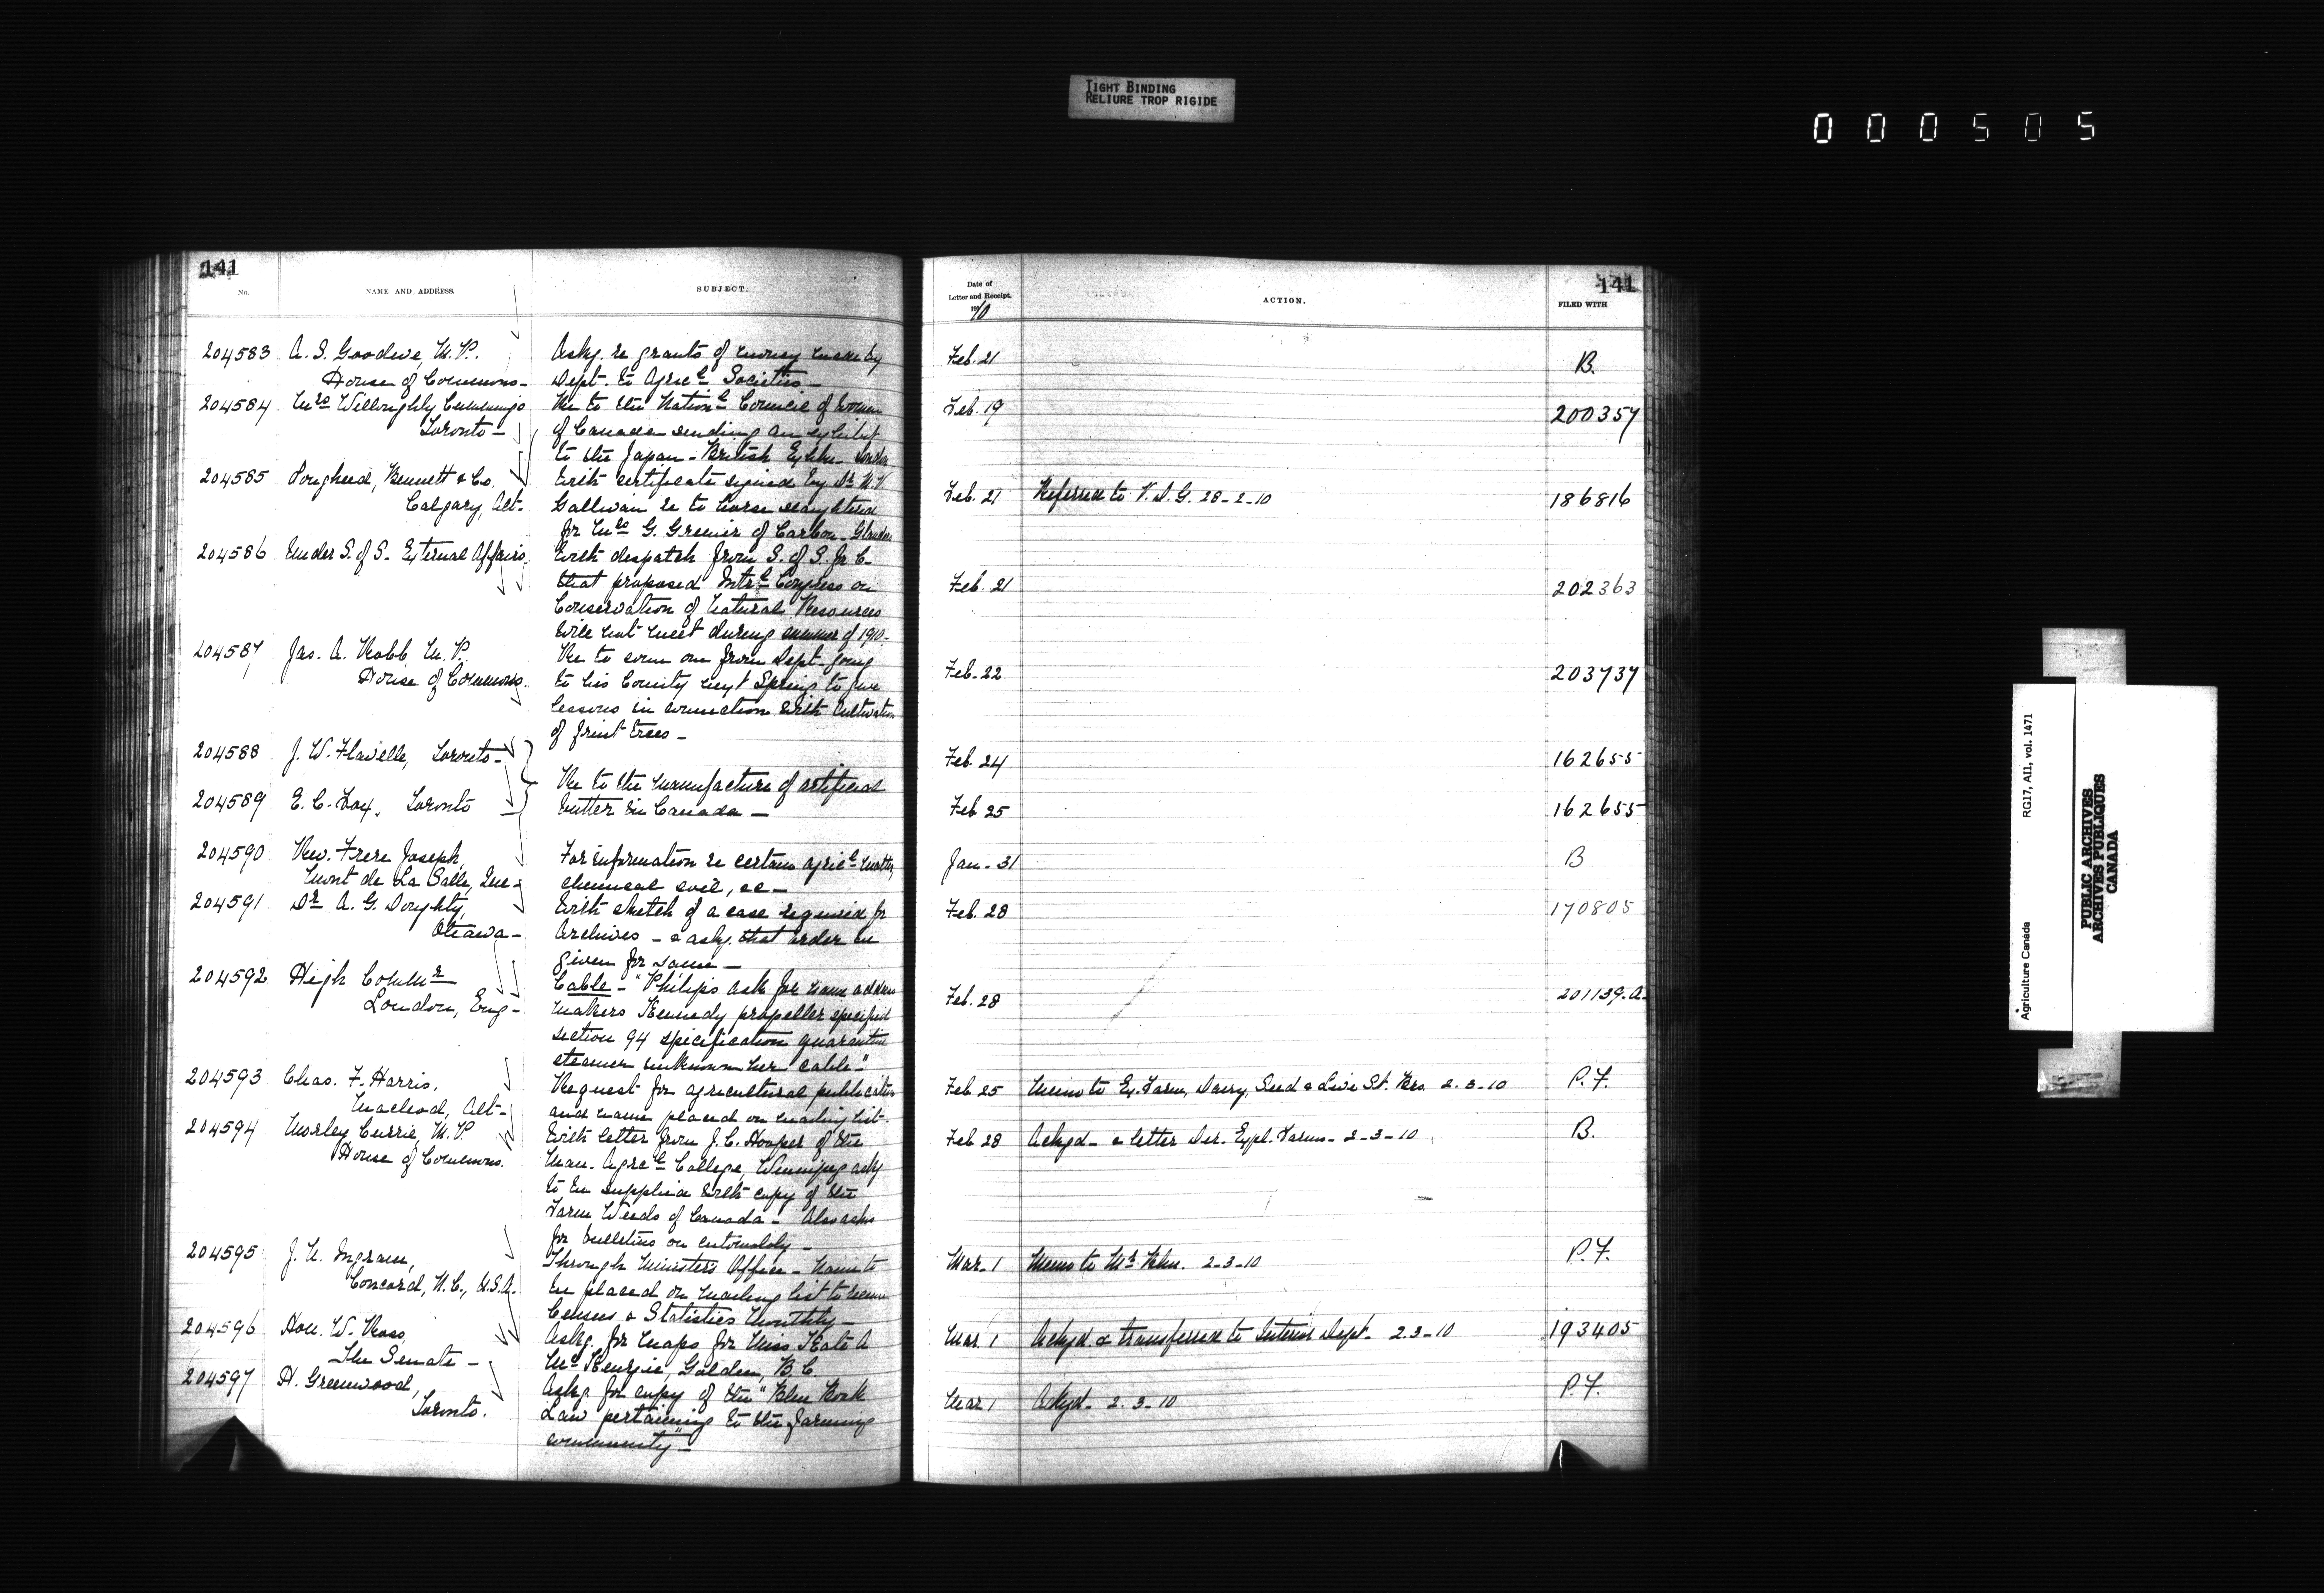 TIGHT BINDING
RELIURE TROP RIGIDE
000505
141
No.
NAME AND ADDRESS.
SUBJECT.
Date of
Letter and Receipt.
1910
ACTION.
141
FILED WITH
204583 A. S. Goodeve, M.P. Askg. re grants of money made by Feb. 21 B.
House of Commons- Dept. to Agricl Societies-
204584 Mrs Willoughby Cummings Re to the Nationl Council of Women Feb. 19 200357
Toronto- of Canada sending an exhibit
to the Japan-British Exhbn- London
204585 Lougheed, Bennett & Co. With certificate signed by Dr
Calgary, Alt- Gallivan re to horse slaughtered Feb. 21 Referred to V.D.G. 28-2-10 186816
for Mrs G. Grenier of Carbon-
204586 Under S. of S. External Affairs. With despatch from S. of S. for C-
that proposed Intrl Congress on Feb. 21 202363
Conservation of Natural Resources
will not meet during summer of 1910-
204587 Jas. A. Robb, M.P. Re to some one from Dept. going
House of Commons. to his County next Spring to give Feb. 22 203737
lessons in connection with cultivation
of fruit trees-
204588 J. W. Flavelle, Toronto- Feb. 24 162655
Re to the manufacture of artificial
204589 E. C. Fox, Toronto butter in Canada- Feb 25 162655
204590 Rev. Frere Joseph, For information re certain agricl matters, Jan- 31 B
Mont de La Salle, Que- chemical soil, &c-
204591 Dr A. G. Doughty, With sketch of a case required for Feb. 28 170805
Ottawa- Archives - & askg. that order be
given for same-
204592 High Commr Cable- "Philips ask for name address
London, Eng- makers Kennedy propeller specified Feb. 28 201139-A-
section 94 specification quarantine
steamer unknown here cable."
204593 Chas. F. Harris, Request for agricultural publications Feb 25 Memo to Ex. Farm, Dairy, Seed & Live St. Brs. 2-3-10 P.F.
Macleod, Alt- and name placed on mailing list.
204594 Morley Currie, M.P. With letter from J. C. Hooper of the Feb 28 Ackgd- & letter Dir. Expl. Farms- 2-3-10 B.
House of Commons. Man. Agricl College, Winnipeg askg
to be supplied with copy of the
Farm Weeds of Canada- Also asks
for bulletins on entomoldy-
204595 J. A. Ingram, Through Minister's Office- Name to Mar. 1 Memo to Mr Blue. 2-3-10 P.F.
Concord, N.C., U.S.A. be placed on mailing list to receive
Census & Statistics Monthly-
204596 Hon. W. Ross, Askg. for maps for Miss Kate A Mar. 1 Ackgd & transferred to Interior Dept- 2.3-10 193405
The Senate- McKenzie, Golden, B.C.
204597 H. Greenwood, Askg. for copy of the "Blue Book Mar 1 Ackgd- 2.3-10 P.F.
Toronto. Law pertaining to the farming
community"-
Agriculture Canada RG17, AII, vol. 1471
PUBLIC ARCHIVES
ARCHIVES PUBLIQUES
CANADA